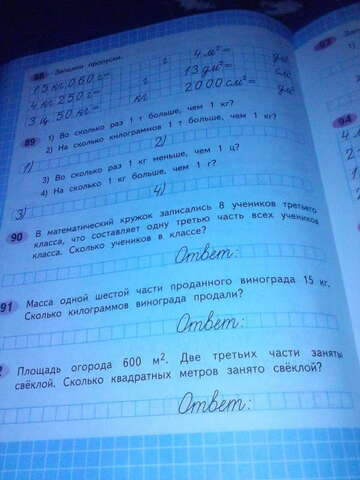 88 Заполни пропуски.
15 кг 060 г = г 4 м² = дм²
4 кг 250 г = г 13 дм² = см²
3 ц 50 кг = кг 2000 см² = дм²
89 1) Во сколько раз 1 т больше, чем 1 кг?
2) На сколько килограммов 1 т больше, чем 1 кг?
1) 2)
3) Во сколько раз 1 кг меньше, чем 1 ц?
4) На сколько 1 кг больше, чем 1 г?
3) 4)
90 В математический кружок записались 8 учеников третьего
класса, что составляет одну третью часть всех учеников
класса. Сколько учеников в классе?
Ответ:
91 Масса одной шестой части проданного винограда 15 кг.
Сколько килограммов винограда продали?
Ответ:
Площадь огорода 600 м². Две третьих части заняты
свёклой. Сколько квадратных метров занято свёклой?
Ответ:
93
94